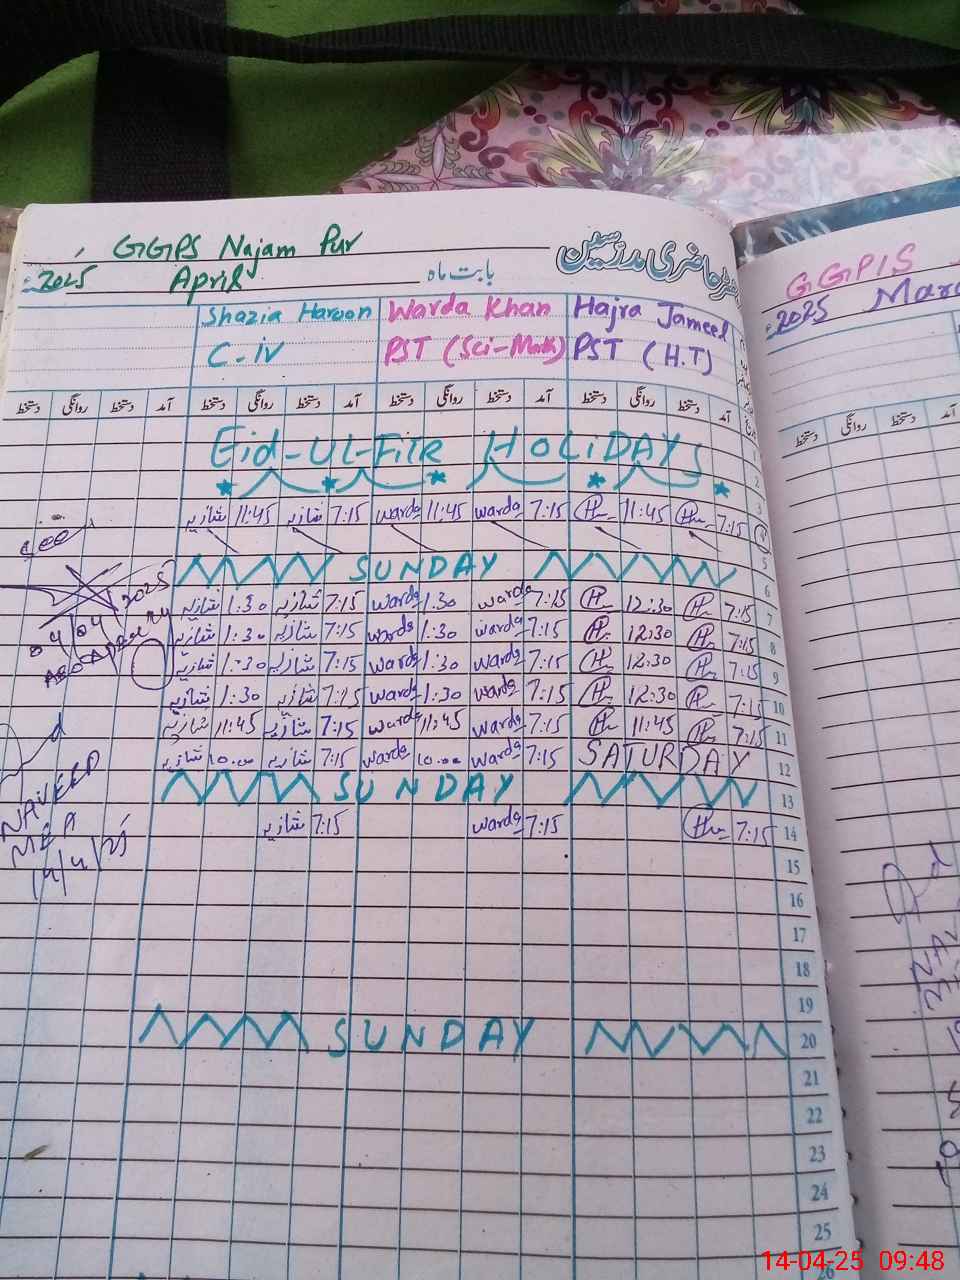 GGPS Najam Pur
رجسٹر حاضری مدرسین
2025 April بابت ماہ
Shazia Haroon Warda Khan Hajra Jameel
C-iv PST (Sci-Math) PST (H.T)
دستخط روانگی دستخط آمد دستخط روانگی دستخط آمد دستخط روانگی دستخط آمد دستخط روانگی دستخط آمد
1
Eid-Ul-Fitr HOLiDAYs
2
3
شازیہ 11:45 شازیہ 7:15 warda 11:45 warda 7:15 11:45 7:15 4
5
SUNDAY 6
شازیہ 1:30 شازیہ 7:15 warda 1:30 warda 7:15 12:30 7:15 7
شازیہ 1:30 شازیہ 7:15 warda 1:30 warda 7:15 12:30 7:15 8
شازیہ 1:30 شازیہ 7:15 warda 1:30 warda 7:15 12:30 7:15 9
شازیہ 1:30 شازیہ 7:15 warda 1:30 warda 7:15 12:30 7:15 10
شازیہ 11:45 شازیہ 7:15 warda 11:45 warda 7:15 11:45 7:15 11
شازیہ 10:00 شازیہ 7:15 warda 10:00 warda 7:15 SATURDAY 12
SUNDAY 13
شازیہ 7:15 warda 7:15 7:15 14
15
16
17
18
19
SUNDAY 20
21
22
23
24
25
26
04/04/2025
NAVEED
MEA
14/4/25
GGPS
2025
دستخط روانگی دستخط
14-04-25 09:48